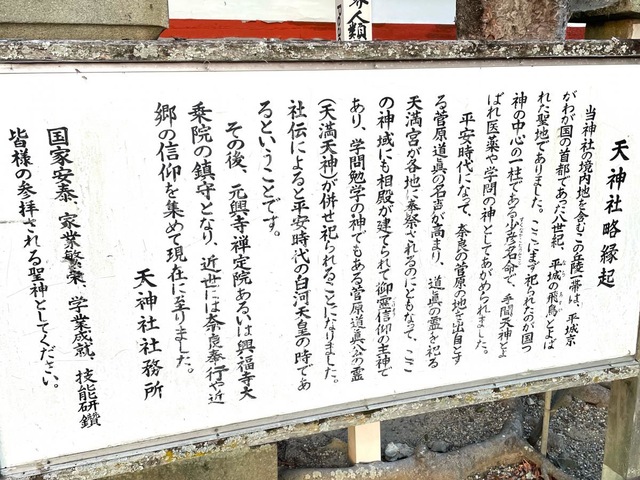 界人類
天神社略縁起
当神社の境内地を含むこの丘陵一帯は、平城京
がわが国の首都であった八世紀、平城の飛鳥とよば
れた聖地でありました。ここにまず祀られたのが国つ
神の中心の一柱である少彦名命で、手間天神とよ
ばれ医薬や学問の神としてあがめられました。
平安時代になって、奈良の菅原の地を出自とす
る菅原道真の名声が高まり、道真の霊を祀る
天満宮が各地に奉祭されるのにともなって、ここ
の神域にも相殿が建てられて御霊信仰の主神で
あり、学問勉学の神でもある菅原道真公の霊
(天満天神)が併せ祀られることになりました。
社伝によると平安時代の白河天皇の時であ
るということです。
その後、元興寺禅定院あるいは興福寺大
乗院の鎮守となり、近世には奈良奉行や近
郷の信仰を集めて現在に至りました。
天神社社務所
国家安泰、家業繁栄、学業成就、技能研鑽
皆様の参拝される聖神としてください。